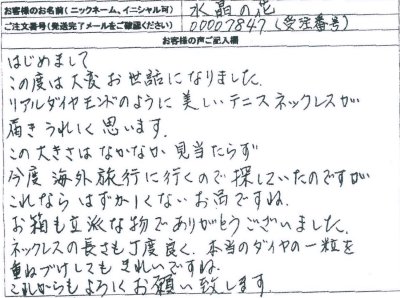 お客様のお名前(ニックネーム、イニシャル可) 水晶の花
ご注文番号(発送完了メールをご確認ください) 00007847(受注番号)
お客様の声ご記入欄
はじめまして
この度は大変お世話になりました。
リアルダイヤモンドのように美しいテニスネックレスが
届きうれしく思います。
この大きさはなかなか見当たらず
今度海外旅行に行くので探していたのですが
これならはずかしくないお品ですね。
お箱も立派な物でありがとうございました。
ネックレスの長さも丁度良く、本当のダイヤの一粒を
重ねづけしてもきれいですね。
これからもよろしくお願い致します。